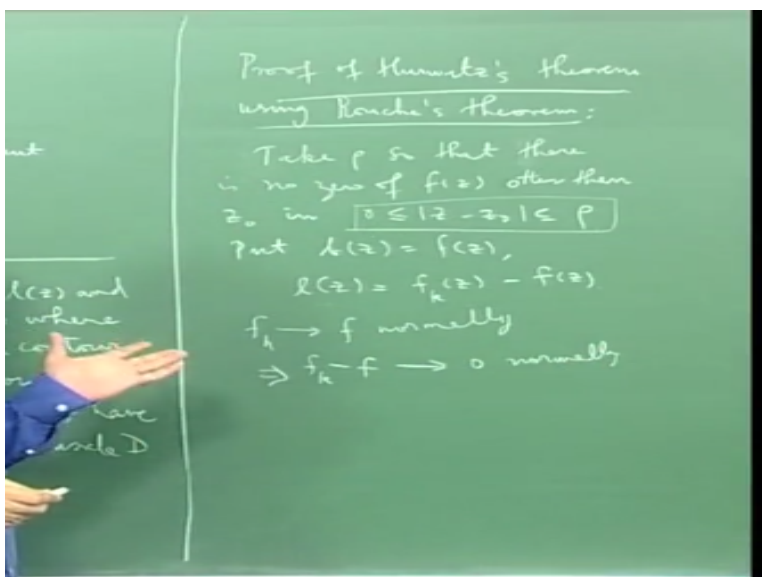 ent
l(z) and
where
contour
have
inside D
Proof of Hurwitz's theorem
using Rouche's theorem:
Take ρ so that there
is no zero of f(z) other than
z₀ in 0 ≤ |z - z₀| ≤ ρ
Put b(z) = f(z),
l(z) = fₖ(z) - f(z)
fₖ → f normally
⇒ fₖ - f → 0 normally